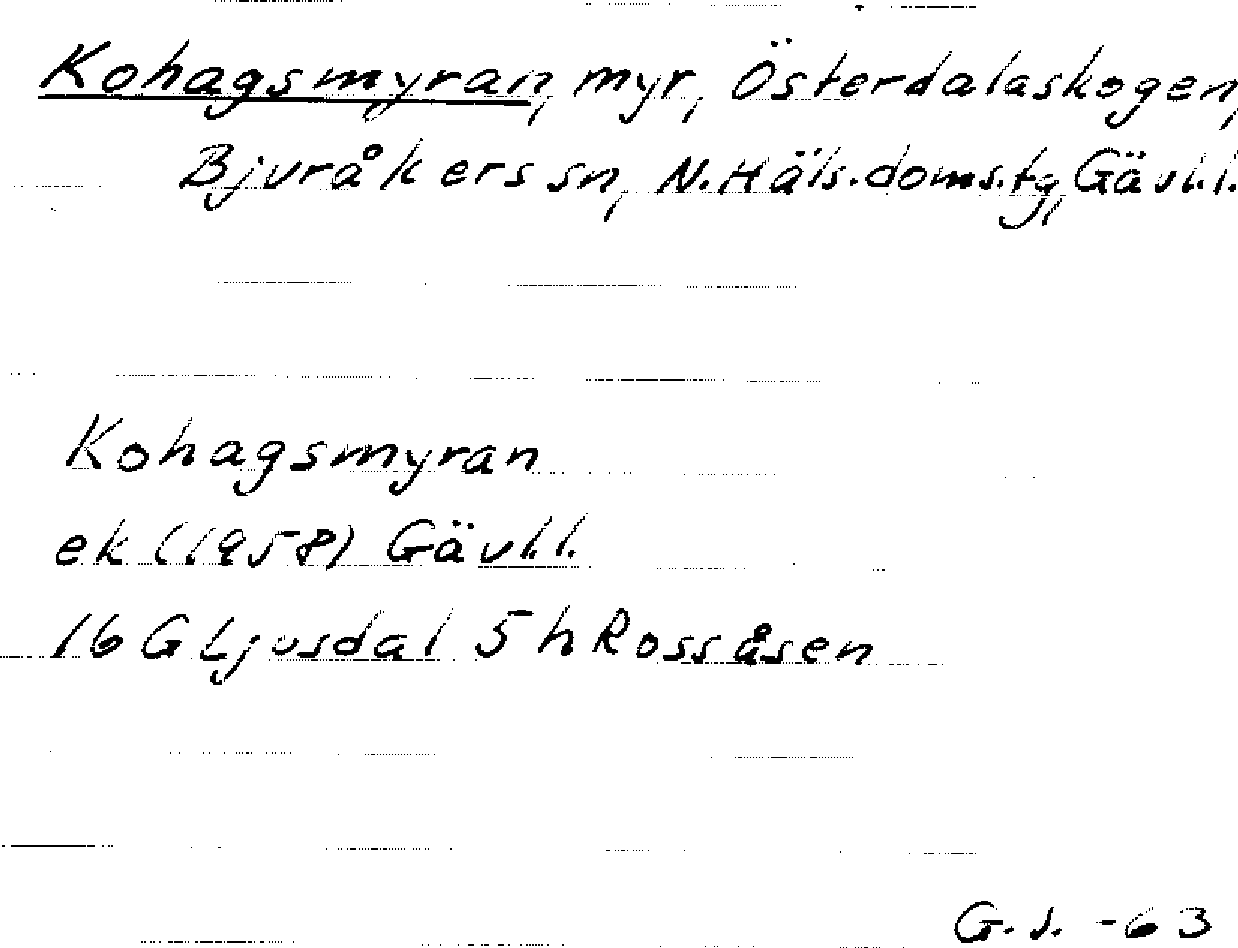 Kohagsmyran, myr, Österdalaskogen,
Bjuråkers sn, N.Häls.doms.tg, Gävl.l.
Kohagsmyran
ek (1958) Gävl.l.
16 G Ljusdal 5 h Rossåsen
G.J. -63